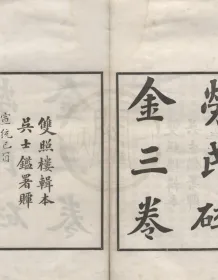 勞氏碎
金三卷
雙照樓輯本
吳士鑑署
宣統己酉